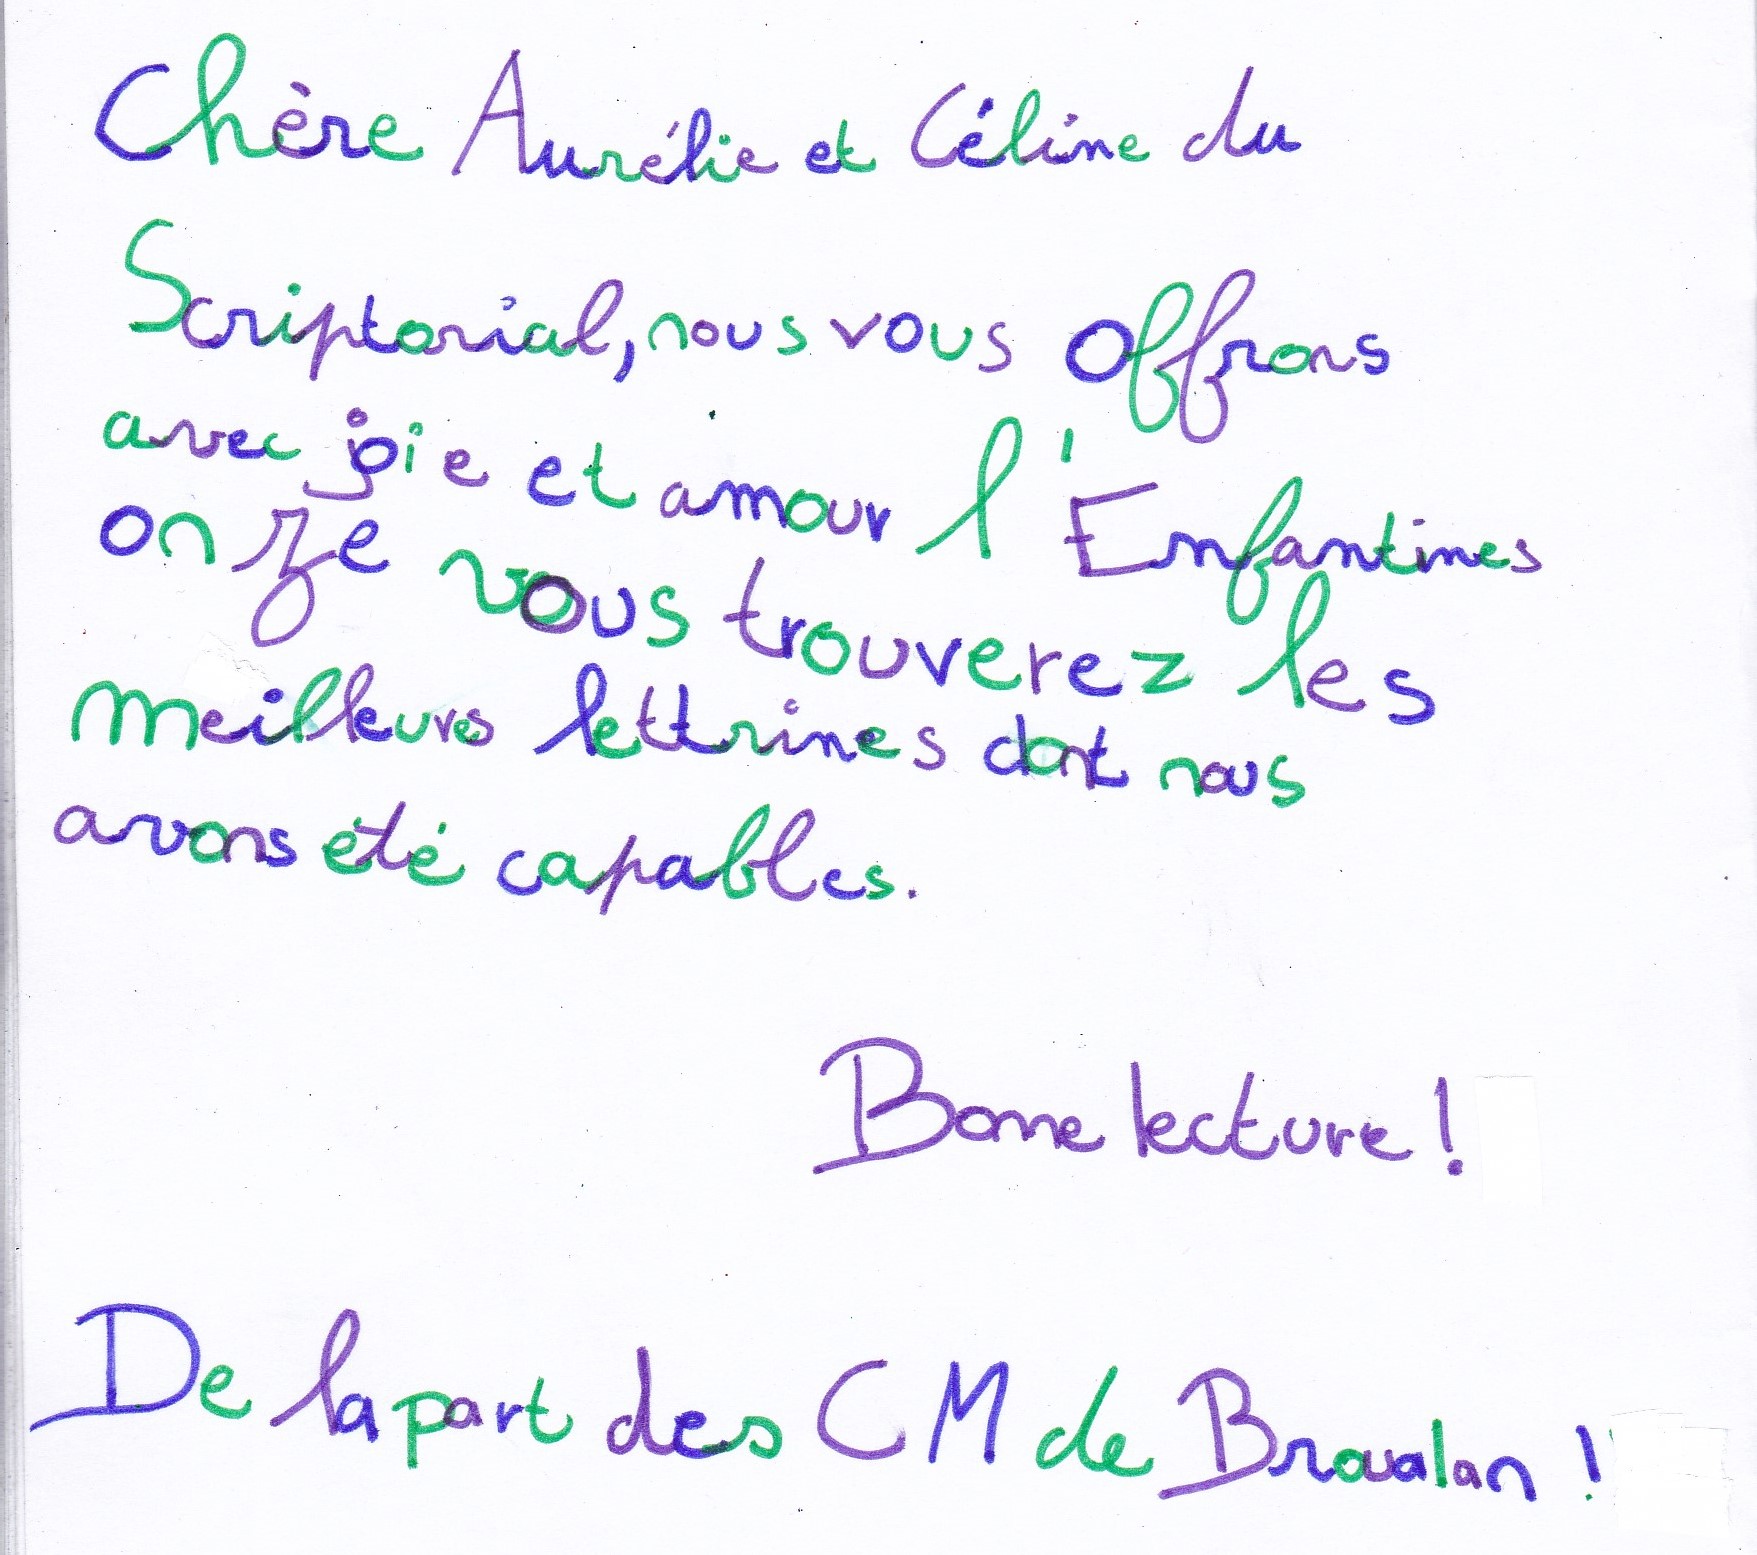 Chère Aurélie et Céline du
Scriptorial, nous vous offrons
avec joie et amour l'Enfantines
onze vous trouverez les
meilleures lettrines dont nous
avons été capables.
Bonne lecture !
De la part des CM de Broualan !